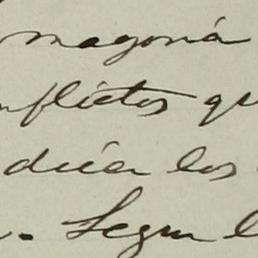 magoriá
nflictos qu
dicen los
. Segun l